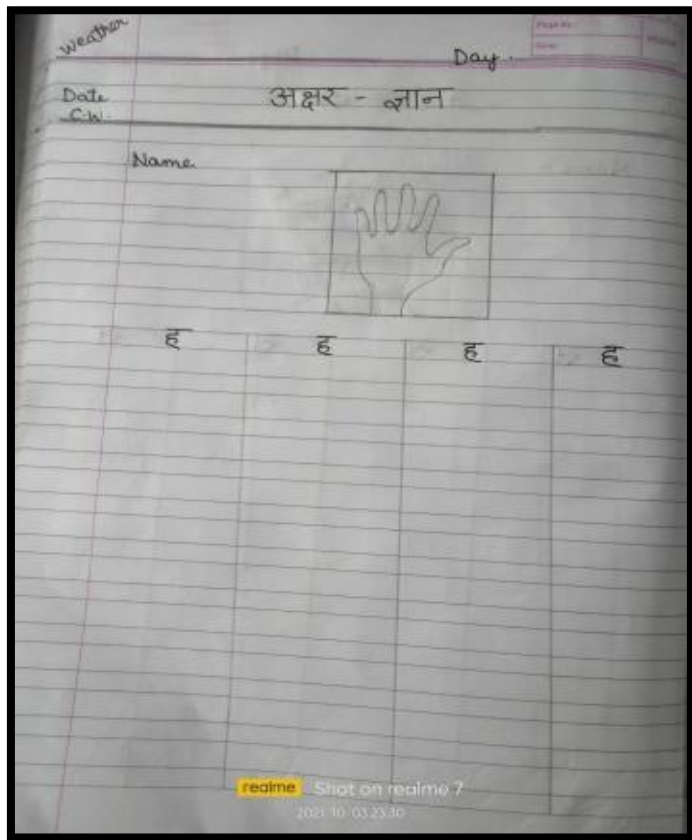 Weather
Page No.:
Date:
Day.
Date
C.W.
अक्षर - ज्ञान
Name
ह ह ह ह
realme Shot on realme 7
2021/10/03 23:30